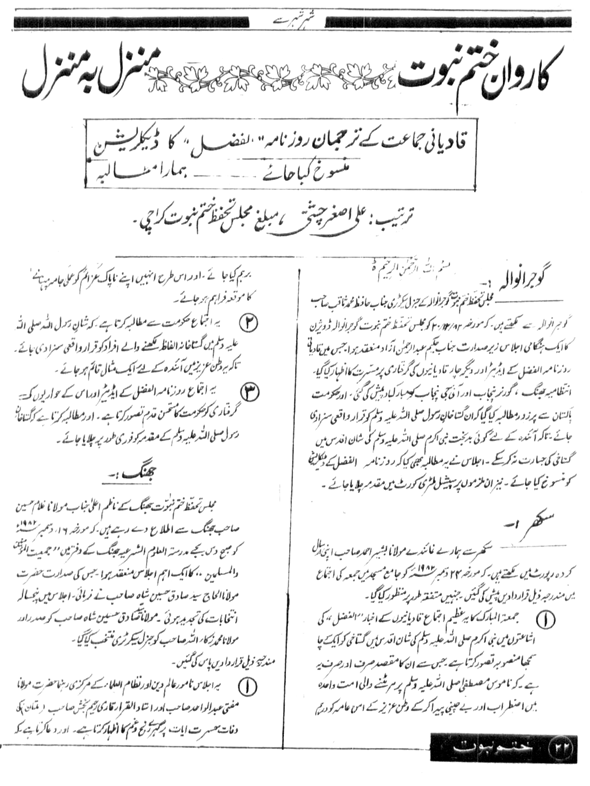 شہر شہر سے
کاروانِ ختم نبوت منزل بہ منزل
قادیانی جماعت کے ترجمان روزنامہ "الفضل" کا ڈیکلریشن
منسوخ کیا جائے ہمارا مطالبہ
ترتیب : علی اصغر چشتی ، مبلغ مجلس تحفظ ختم نبوت کراچی ۔
بسم اللہ الرحمن الرحیم
گوجرانوالہ :-
مجلس تحفظ ختم نبوت گوجرانوالہ کے جنرل سیکرٹری جناب حافظ محمد ثاقب صاحب
گوجرانوالہ سے لکھتے ہیں کہ مورخہ مجلس تحفظ ختم نبوت گوجرانوالہ ڈویژن
کا ایک ہنگامی اجلاس زیر صدارت جناب حکیم عبدالرحمٰن آزاد منعقد ہوا جس میں قادیانی
روزنامہ الفضل کے ایڈیٹر اور دیگر چار قادیانیوں کی گرفتاری پر مسرت کا اظہار کیا گیا۔
انتظامیہ جھنگ ، گورنر پنجاب اور آئی جی پنجاب کو مبارکباد پیش کی گئی اور حکومت
پاکستان سے پر زور مطالبہ کیا گیا کہ ان گستاخانِ رسول صلی اللہ علیہ وسلم کو قرار واقعی سزا دی
جائے ۔ تاکہ آئندہ کے لئے کوئی بدبخت نبی اکرم صلی اللہ علیہ وسلم کی شان اقدس میں
گستاخی کی جسارت نہ کر سکے ۔ اجلاس نے یہ مطالبہ بھی کیا کہ روزنامہ الفضل کے ڈیکلریشن
کو منسوخ کیا جائے ۔ نیز ان ملزموں پر سپیشل ملٹری کورٹ میں مقدمہ چلایا جائے ۔
سکھر :-
سکھر سے ہمارے نمائندے مولانا بشیر احمد صاحب اپنی ارسال
کردہ رپورٹ میں لکھتے ہیں ۔ کہ مورخہ ۲۴ دسمبر ۱۹۸۲ء کو جامع مسجد میں جمعہ کی اجتماع
میں مندرجہ ذیل قرار دادیں پیش کی گئیں ۔ جنہیں متفقہ طور پر منظور کیا گیا ۔
۱ جمعۃ المبارک کا یہ عظیم اجتماع قادیانیوں کے اخبار "الفضل" کی
اشاعتوں میں نبی اکرم صلی اللہ علیہ وسلم کی شان اقدس میں گستاخی کو ایک سوچا
سمجھا منصوبہ تصور کرتا ہے جس سے ان کا مقصد صرف اور صرف یہ
ہے ۔ کہ ناموس مصطفیٰ صلی اللہ علیہ وسلم پر مر مٹنے والی امت واحدہ
میں اضطراب اور بے چینی پیدا کر کے وطن عزیز کے امن عامہ کو درہم
برہم کیا جائے ۔ اور اس طرح انہیں اپنے ناپاک عزائم کو عملی جامہ پہنانے
کا موقعہ فراہم ہو جائے ۔
۲ یہ اجتماع حکومت سے مطالبہ کرتا ہے ، کہ شان رسول اللہ صلی اللہ
علیہ وسلم میں گستاخانہ الفاظ لکھنے والے افراد کو قرار واقعی سزا دی جائے ۔
تاکہ یہ وطن عزیز میں آئندہ کے لئے ایک مثال قائم ہو جائے ۔
۳ یہ اجتماع روزنامہ الفضل کے ایڈیٹر اور اس کے حواریوں کی
گرفتاری کو حکومت کا مستحسن قدم تصور کرتا ہے ۔ اور مطالبہ کرتا ہے کہ گستاخان
رسول صلی اللہ علیہ وسلم کے مقدمہ کو فوری طور پر چلایا جائے ۔
جھنگ :-
مجلس تحفظ ختم نبوت جھنگ کے ناظم اعلیٰ جناب مولانا غلام حسین
صاحب جھنگ سے اطلاع دے رہے ہیں ۔ کہ مورخہ ۱۶ ، دسمبر ۱۹۸۲ء
کو صبح دس بجے مدرسۃ العلوم الشرعیہ جھنگ کے دفتر میں "جمعیت المدرسین
والمسلمین" کا ایک اہم اجلاس منعقد ہوا ۔ جس کی صدارت حضرت
مولانا الحاج سید صادق حسین شاہ صاحب نے فرمائی ۔ اجلاس میں پنجسالہ
انتخابات کی تجدید ہوئی ۔ مولانا سید صادق حسین شاہ صاحب کو صدر اور
مولانا محمد ذکاء اللہ صاحب کو جنرل سیکرٹری منتخب کیا گیا ۔
مندرجہ ذیل قرار دادیں پاس کی گئیں ۔
۱ یہ اجلاس نامور عالم دین اور نظام العلماء کے مرکزی رہنما حضرت مولانا
مفتی عبدالواحد صاحب اور استاذ القراء قاری رحیم بخش صاحب (ملتان) کی
وفات حسرت آیات پر گہرے رنج و غم کا اظہار کرتا ہے ۔ اور دعا کرتا ہے کہ
ختم نبوت ۲۲